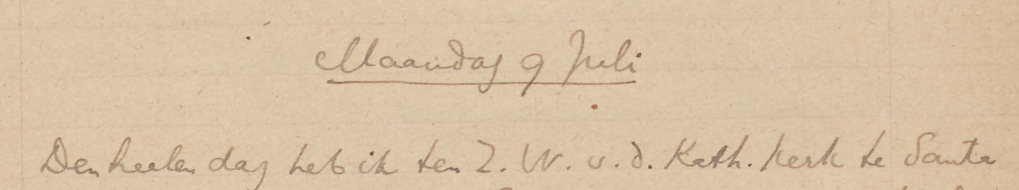 Maandag 9 Juli
Den heelen dag heb ik ten Z. W. v. d. Kath. kerk te Santa